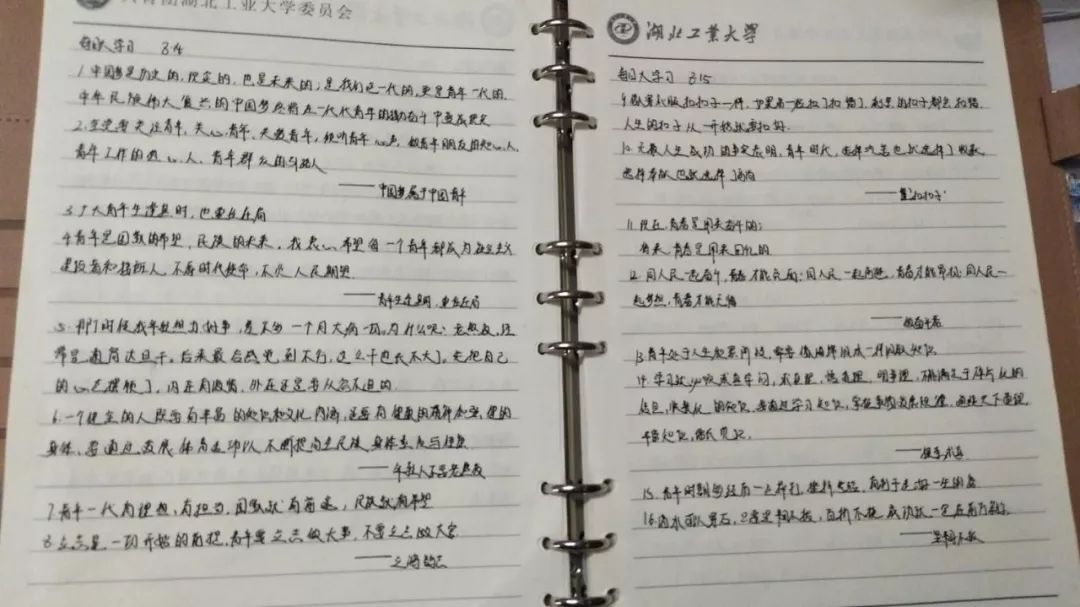 共青团湖北工业大学委员会
每日大学习 3.4
1.中国梦是历史的、现实的,也是未来的;是我们这一代的,更是青年一代的,
中华民族伟大复兴的中国梦终将在一代代青年的接力奋斗中变成现实
2.全党要关注青年、关心青年、关爱青年,倾听青年心声,做青年朋友的知心人、
青年工作的热心人、青年群众的引路人
——中国梦属于中国青年
3.广大青年生逢其时,也重任在肩
4.青年是国家的希望,民族的未来,我衷心希望每一个青年都成为社会主义
建设者和接班人,不辱时代使命,不负人民期望
——青年生逢其时,重任在肩
5.那个时候我年轻想办好事,差不多一个月大病一场,为什么呢?老熬夜,经
常是通宵达旦干。后来最后感觉到不行,这么干也长不大了。先把自己
的心态摆顺了,内在有激情,外在还是要从容不迫的
6.一个健全的人既要有丰富的知识和文化内涵,还要有健康的精神和强健的
身体,要通过发展体育运动以不断提高全民族身体素质与健康
——年轻人不要老熬夜
7.青年一代有理想,有担当,国家就有前途,民族就有希望
8.立志是一切开始的前提,青年要立志做大事,不要立志做大官
——立鸿鹄志
湖北工业大学
每日大学习 3.15
9.做事就像扣扣子一样,如果第一粒扣子扣错了,剩余的扣子都会扣错
人生的扣子从一开始就要扣好
10.无数人生成功的事实表明,青年时代,选择吃苦也就选择了收获,
选择奉献也就选择了高尚
11.现在,青春是用来奋斗的;
将来,青春是用来回忆的
12.同人民一起奋斗,青春才能亮丽;同人民一起前进,青春才能昂扬;同人民一
起梦想,青春才能无悔
13.青年处于人生积累阶段,需要像海绵汲水一样汲取知识
14.学习就必须求真学问,求真理、悟道理、明事理,不能满足于碎片化的
信息、快餐化的知识,要通过学习知识,掌握事物发展规律,通晓天下道理,
丰富知识,增长见识.
15.青年时期多经历一点摔打、挫折、考验,有利于走好一生的路
16.滴水可以穿石,只要坚韧不拔,百折不挠,成功就一定在前方等你
——坚韧不拔